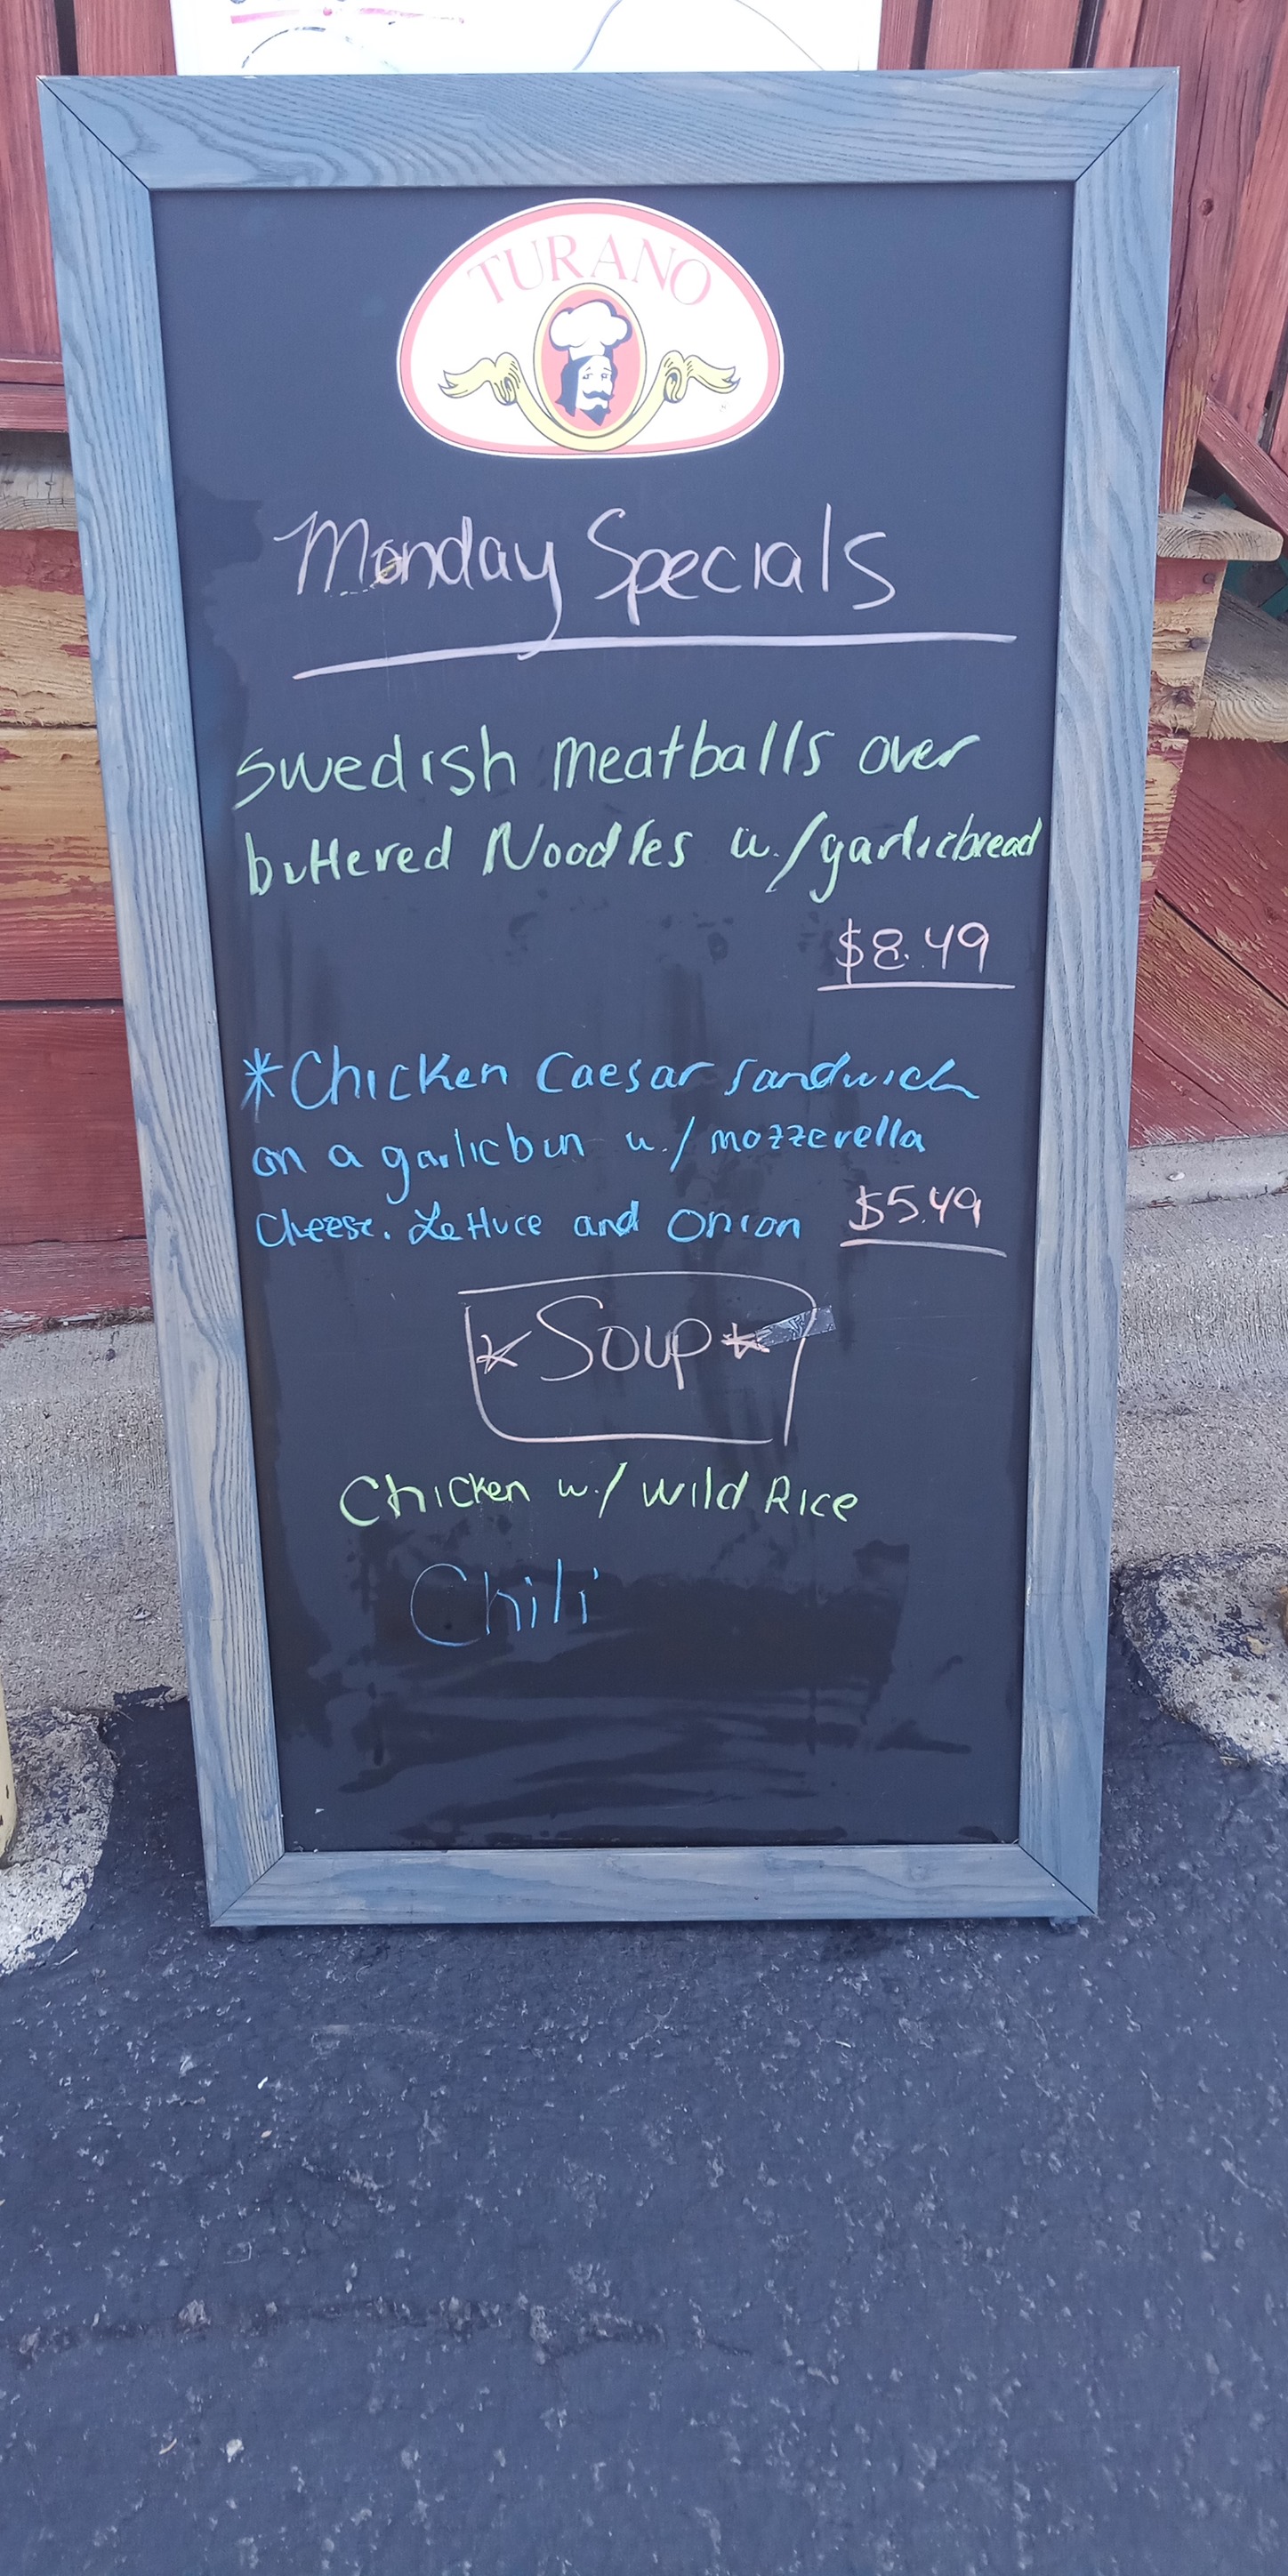 TURANO
Monday Specials
Swedish Meatballs over
buttered Noodles w./garlicbread
$8.49
*Chicken Caesar Sandwich
on a garlicbun w./ mozzerella
Cheese. Lettuce and Onion $5.49
*Soup*
Chicken w./ Wild Rice
Chili